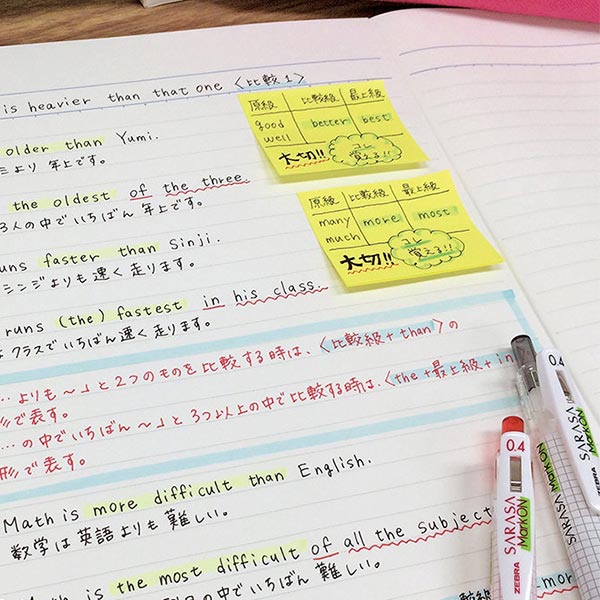 is heavier than that one 〈比較1〉
older than Yumi.
より 年上です。
the oldest of the three
3人の中でいちばん 年上です。
uns faster than Sinji.
シンジよりも速く走ります。
runs (the) fastest in his class.
クラスでいちばん速く走ります。
原級 比較級 最上級
good better best
well
大切!! コレ覚える!!
原級 比較級 最上級
many more most
much
大切!! コレ覚える!!
…よりも〜」と2つのものを比較する時は、〈比較級+than〉の
形で表す。
…の中でいちばん〜」と3つ以上の中で比較する時は、〈the+最上級+in
形で表す。
Math is more difficult than English.
数学は英語よりも難しい。
is the most difficult of all the subject
の中でいちばん難しい。
0.4 SARASA MarkON ZEBRA
0.4 SARASA MarkON
SARASA MarkON ZEBRA